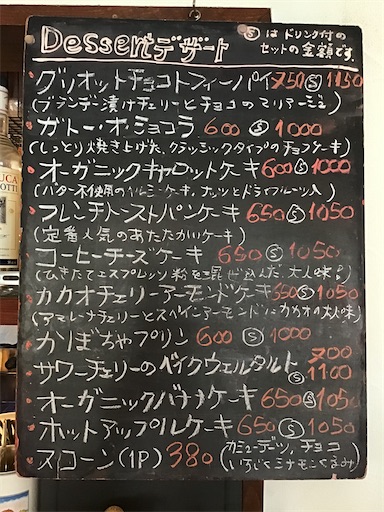 Dessertデザート
Ⓢはドリンク付の
セットの金額です。
グリオットチョコトフィーパイ 750 Ⓢ 1150
(ブランデー漬けチェリーとチョコのマリアージュ)
ガトー・オ・ショコラ 600 Ⓢ 1000
(しっとり焼き上げた、クラッシックタイプのチョコケーキ)
オーガニックキャロットケーキ 600 Ⓢ 1000
(バター不使用のヘルシーケーキ。ナッツとドライフルーツ入)
フレンチトーストパンケーキ 650 Ⓢ 1050
(定番人気のあたたかいケーキ)
コーヒーチーズケーキ 650 Ⓢ 1050
(ひきたてエスプレッソ粉を混ぜ込んだ、大人味。)
カカオチェリーアーモンドケーキ 650 Ⓢ 1050
(アマレーナチェリーとスペインアーモンド 、カカオの大人味)
かぼちゃプリン 600 Ⓢ 1000
サワーチェリーのベイクウェルタルト 700 Ⓢ 1100
オーガニックバナナケーキ 650 Ⓢ 1050
ホットアップルケーキ 650 Ⓢ 1050
スコーン(1P) 380 (カミューデーツ、チョコ
いちじくシナモンくるみ)